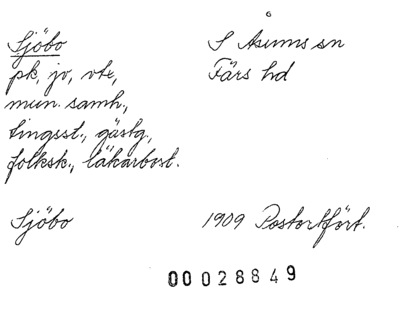 Sjöbo
S Åsums sn
pk, jv, vte,
Färs hd
mun. samh.,
tingsst., gästg.,
folksk., läkarbost.
Sjöbo
1909 Postortfört.
00028849